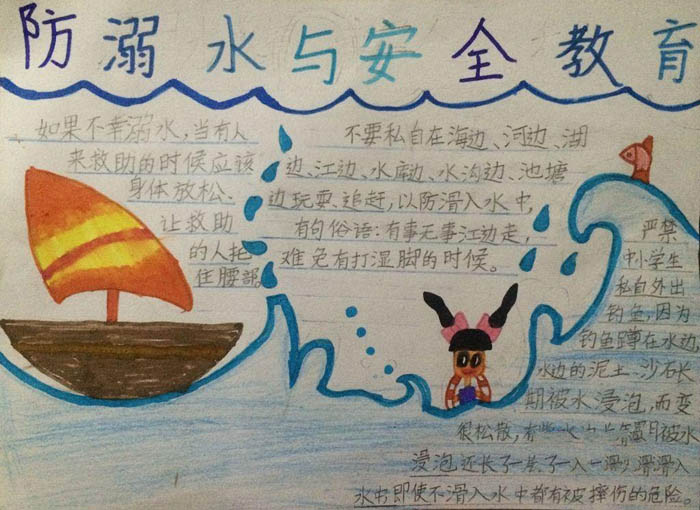 防溺水与安全教育
如果不幸溺水,当有人
来救助的时候应该
身体放松、
让救助
的人托
住腰部。
不要私自在海边、河边、湖
边、江边、水库边、水沟边、池塘
边玩耍、追赶,以防滑入水中,
有句俗语:有事无事江边走,
难免有打湿脚的时候。
严禁
中小学生
私自外出
钓鱼,因为
钓鱼蹲在水边,
水边的泥土、沙石长
期被水浸泡,而变
很松散,有 水 被水
浸泡还长了一层 一 滑 滑入
水中即使不滑入水中都有被摔伤的危险。